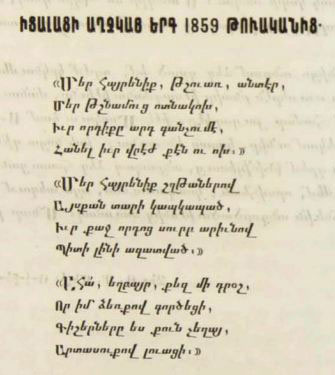 ԻՏԱԼԱՑԻ ԱՂՋԿԱՅ ԵՐԳ 1859 ԹՈՒԱԿԱՆԻՑ·
«Մեր Հայրենիք, Թշուառ, անտէր,
Մեր Թշնամուց ոտնակոխ,
Իւր որդիքը արդ կանչում է,
Հանել իւր վրէժ քէն ու ոխ.»
«Մեր Հայրենիք շղթաներով
Այսքան տարի կապկապած,
Իւր քաջ որդոց սուրբ արիւնով
Պիտի լինի ազատված.»
«Ահա, եղբայր, քեզ մի դրօշ,
Որ իմ ձեռքով գործեցի,
Գիշերները ես քուն չեղայ,
Արտասուքով լուացի.»